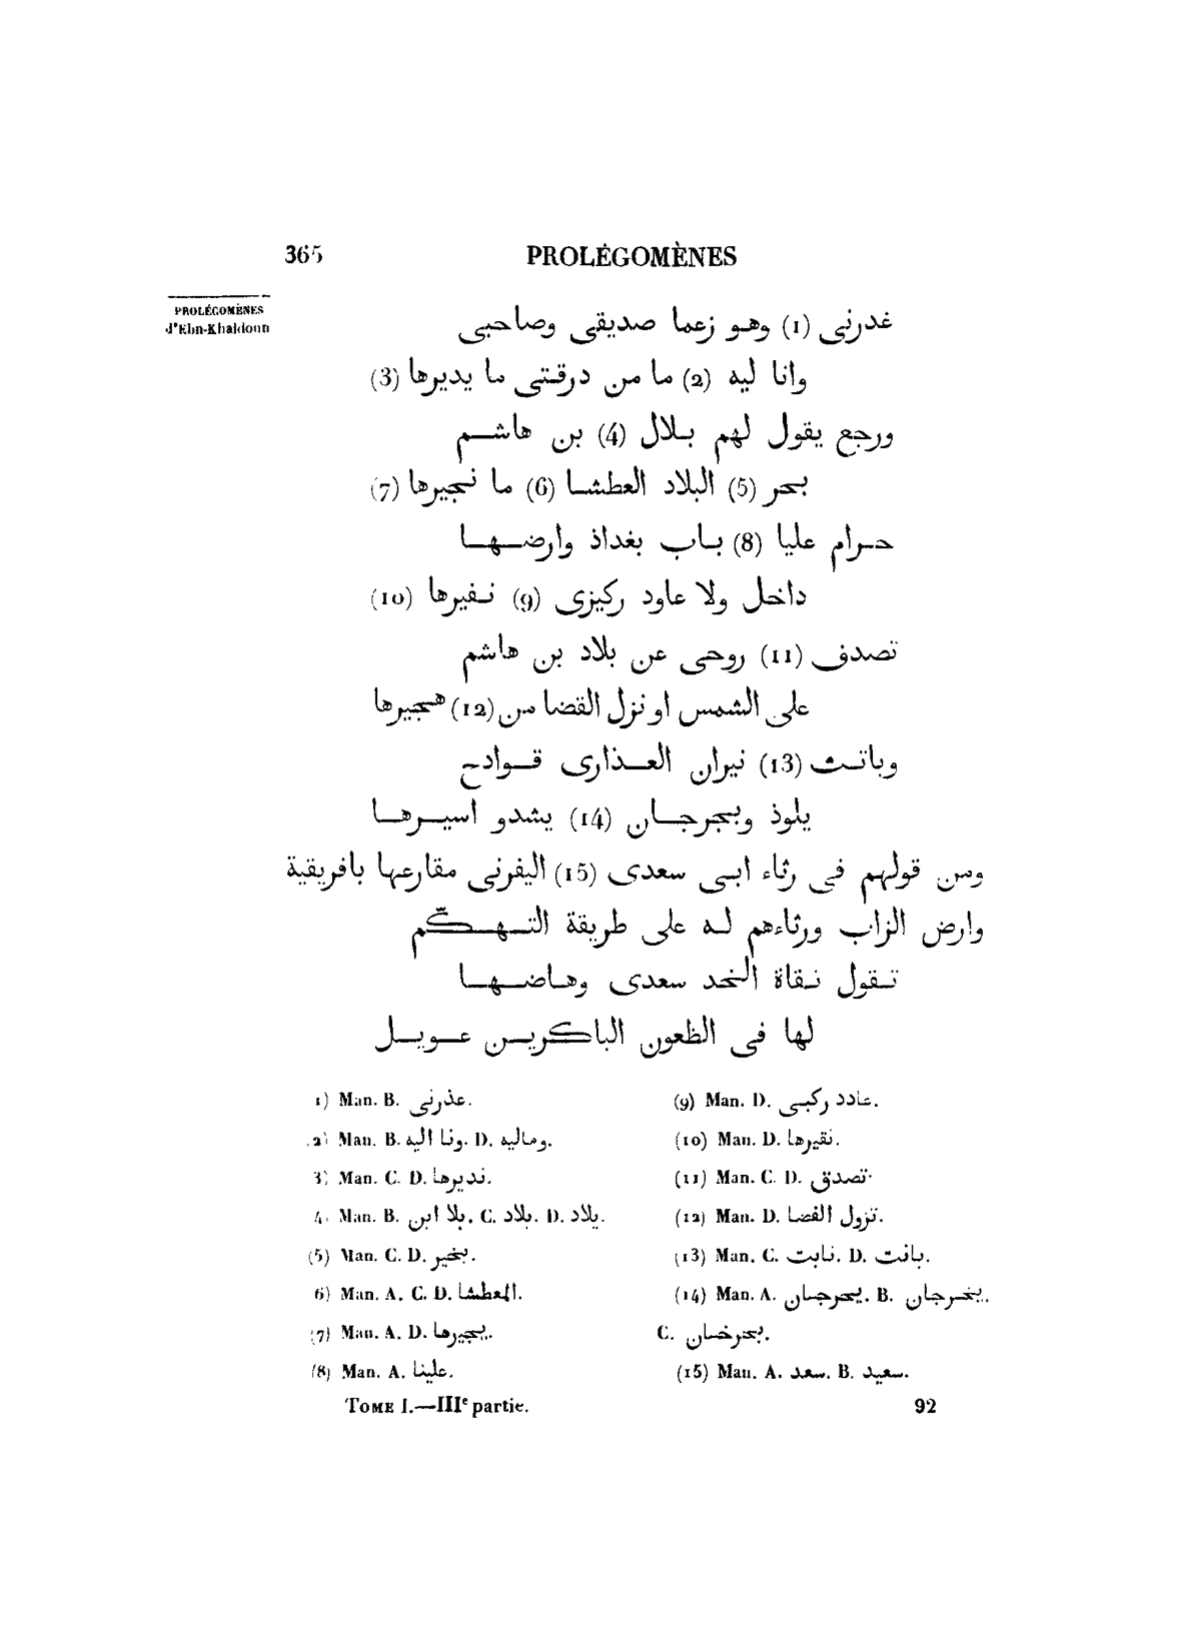 365 PROLÉGOMÈNES
PROLÉGOMÈNES
d'Ebn-Khaldoun
غدرنى (1) وهو زعما صديقى وصاحبى
وانا ليه (2) ما من درقتى ما يديرها (3)
ورجع يقول لهم بلال (4) بن هاشم
بحر (5) البلاد العطشا (6) ما نجيرها (7)
حرام عليا (8) باب بغداذ وارضها
داخل ولا عاود ركيزى (9) نفيرها (10)
تصدف (11) روحى عن بلاد بن هاشم
على الشمس او نزل القضا من (12) هجيرها
وباتث (13) نيران العذارى قوادح
يلوذ وبجرجان (14) يشدو اسيرها
ومن قولهم فى رثاء ابى سعدى (15) اليفرنى مقارعها بافريقية
وارض الزاب ورثاءهم له على طريقة التهكّم
تقول نقاة الخد سعدى وهاضها
لها فى الظعون الباكرين عويل
1) Man. B. عذرنى.
2) Man. B. ونا اليه. D. وماليه.
3) Man. C. D. نديرها.
4) Man. B. بلا ابن. C. بلاد. D. يلاد.
(5) Man. C. D. بخير.
6) Man. A. C. D. المعطشا.
(7) Man. A. D. يجيرها.
(8) Man. A. علينا.
(9) Man. D. عادد ركبى.
(10) Man. D. نقيرها.
(11) Man. C. D. تصدق.
(12) Man. D. تزول الفضا.
(13) Man. C. نابت. D. بانت.
(14) Man. A. يحرجان. B. يخرجان.
C. بحترخان.
(15) Man. A. سعد. B. سعيد.
TOME I.—IIIe partie. 92